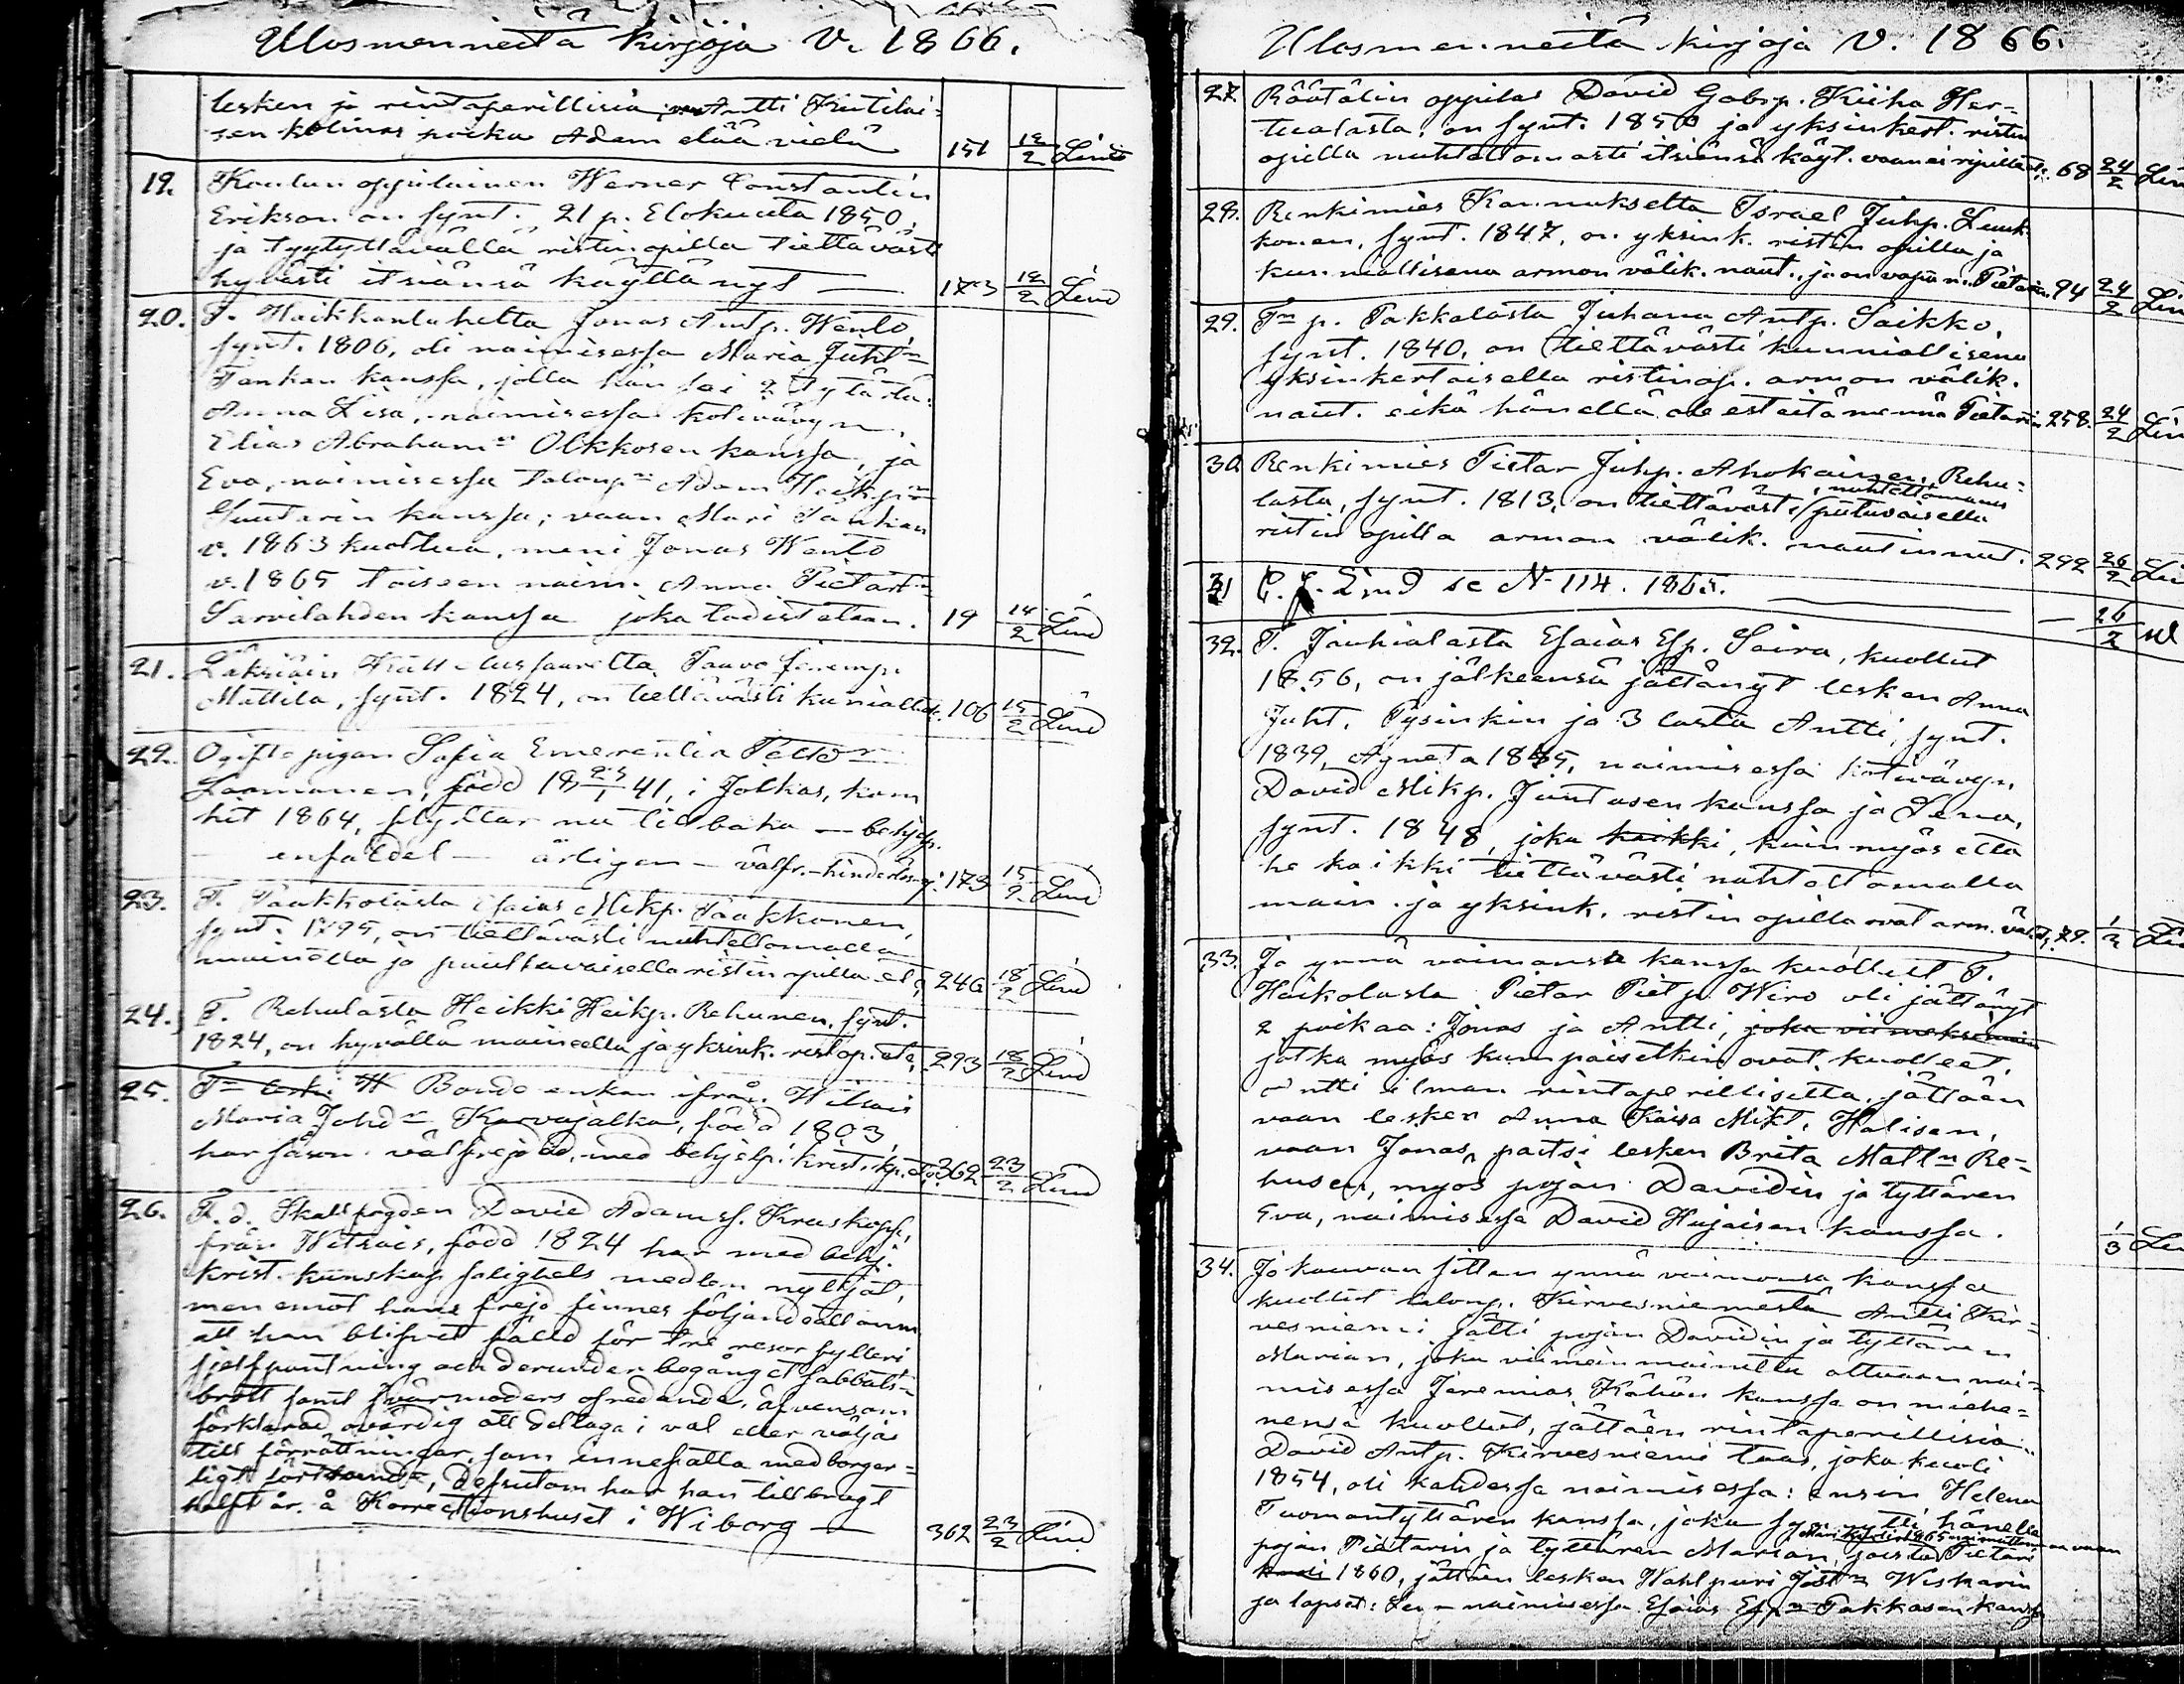 Ulosmenneitä kirjoja V. 1866.
lesken ja rintaperillisiä, Antti Kintilai-
sen kolmas poika Adam elää vielä 151 12/2 Lind
19. Koulun oppilainen Werner Constantin
Erikson on synt. 21 p. Elokuuta 1850,
ja tyytyttävällä ristinopilla tiettäväst
hyvästi itsiänsä käyttänyt — 173 12/2 Lind
20. T. Haikkanlahelta Jonas Antp. Wento,
synt. 1806, oli naimisessa Maria Juht:n
Tankan kanssa, jolla hän sai 2 tytärtä:
Anna Lisa, naimisessa kotivävyn,
Elias Abraham:n Olkkosen kanssa, ja
Eva, naimisessa talonp:n Adam Heikp:n
Suutarin kanssa; vaan Mari Tankan
v. 1863 kuoltua, meni Jonas Wento
v. 1865 toiseen naim. Anna Pietart:n
Sarvilahden kanssa joka todistetaan. 19 14/2 Lind
21. Läksiäin Paavo Jeremp.
Mattila, synt. 1824, on tiettävästi kuniallt. 106 15/2 Lind
22. Ogifta pigan Sofia Emerentia
Laamanen, född 18 23/1 41, i Jolkas, kom
hit 1864, flyttar nu tilbaka — behjelp.
— enfaldel — ärligen — välfr. – hinderlös 173 15/2 Lind
23. T. Paakkolasta Esaias Mikp. Paakkonen,
synt. 1795, on tiettävästi nuhtettomalla
maineella ja puuttuvaisella ristin opilla etc. 246 18/2 Lind
24. T. Rehulasta Heikki Heikp. Rehunen, synt.
1824, on hyvällä maineella ja yksink. rist. op. etc. 293 18/2 Lind
25. T:n leski Bonde enkan ifrån Witsais
Maria Johd:r Karvajalka, född 1803,
har såsom välfrejdad, med behjelp. krist. kp. etc. 362 23/2 Lind
26. F. d. Skallfogden David Adamss. Kraskopf,
från Witsais, född 1824 har med behj.
krist. kunskap salighets medlen nyttjat,
men emot hans frejd finnes följande att anm
att han blifvit fälld för tre resor fylleri
sjelfpantning och derunder begånget sabbats-
brott samt svärmoders ofredande, äfvensom
förklarad ovärdig att deltaga i val eller väljas
till förrättningar, som innefatta medborger-
ligt förtroende, Desutom har han tillbragt
halft år å Korrectionshuset i Wiborg — 362 23/2 Lind
Ulosmenneitä kirjoja V. 1866.
27. Räätälin oppilas David Gabrp. Kiiha Her-
tualasta, on synt. 1850 ja yksinkert. ristin
opilla nuhtettomasti itsiänsä käyt. vaan ei ripillä 68 24/2 Lin
28. Renkimies Kannukselta Israel Juhp. Leuk-
konen, synt. 1847, on yksink. ristin opilla ja
kunniallisena armon välik. naut., ja on vapa n. Pietarin. 94 24/2 Lin
29. T:n p. Pakkalasta Juhana Antp. Saikko,
synt. 1840, on tiettävästi kunniallisena
yksinkertaisella ristinop. armon välik.
naut. eikä hänellä ole esteitä mennä Pietariin 258. 24/2 Lin
30. Renkimies Pietar Juhp. Ahokainen, Rehu-
nuhtettomana
lasta, synt. 1813, on tiettävästi puuttuvaisella
ristin opilla armon välik. nautinnut. 292 26/2 Lin
31 C. J. Lind se N 114. 1865. — 26/2
32. T. Jauhialasta Esaias Esp. Saira, kuollut
1856, on jälkeensä jättänyt lesken Anna
Juht. Pysinkin ja 3 lasta Antti, synt.
1839, Agneta 1845, naimisessa kotivävyn,
David Mikp. Juntusen kanssa ja Lena,
synt. 1848, joka kaikki, kuin myös että
he kaikki tiettävästi nuhtettomalla
main. ja yksink. ristin opilla ovat arm. väl. 79. 1/3 Lin
33. Jo ynnä vaimonsa kanssa kuollut T.
Haikolasta Pietar Pietp. Wiro oli jättänyt
2 poikaa: Jonas ja Antti, joka viimeksi
jotka myös kumpaisetkin ovat kuolleet,
Antti ilman rintaperillisettä, jättäen
vaan lesken Anna Kaisa Mikt. Halisen,
vaan Jonas, paitsi lesken Brita Matt:n Re-
husen, myös pojan Davidin ja tyttären
Eva, naimisessa David Hujaisen kanssa. 1/3 Lin
34. Jo kauvan sitten ynnä vaimonsa kanssa
kuollut talonp. Kirvesniemestä Antti Kir-
vesniemi jätti pojan Davidin ja tyttären
Marian, joka viimein mainittu oltuaan nai-
misessa Jeremias Kähön kanssa on miehi-
nensä kuollut, jättäen rintaperillisiä
David Antp. Kirvesniemi taas, joka kuoli
1854, oli kahdessa naimisessa: ensin Helena
Tuomantyttären kanssa, joka synnytti hänelle
pojan Pietarin ja tyttären Marian, joista Pietari
kuoli 1860, jättäen lesken Wahlpuri Wiskarin
ja lapset: naimisessa Esaias Esp:n Pakkasen kanssa